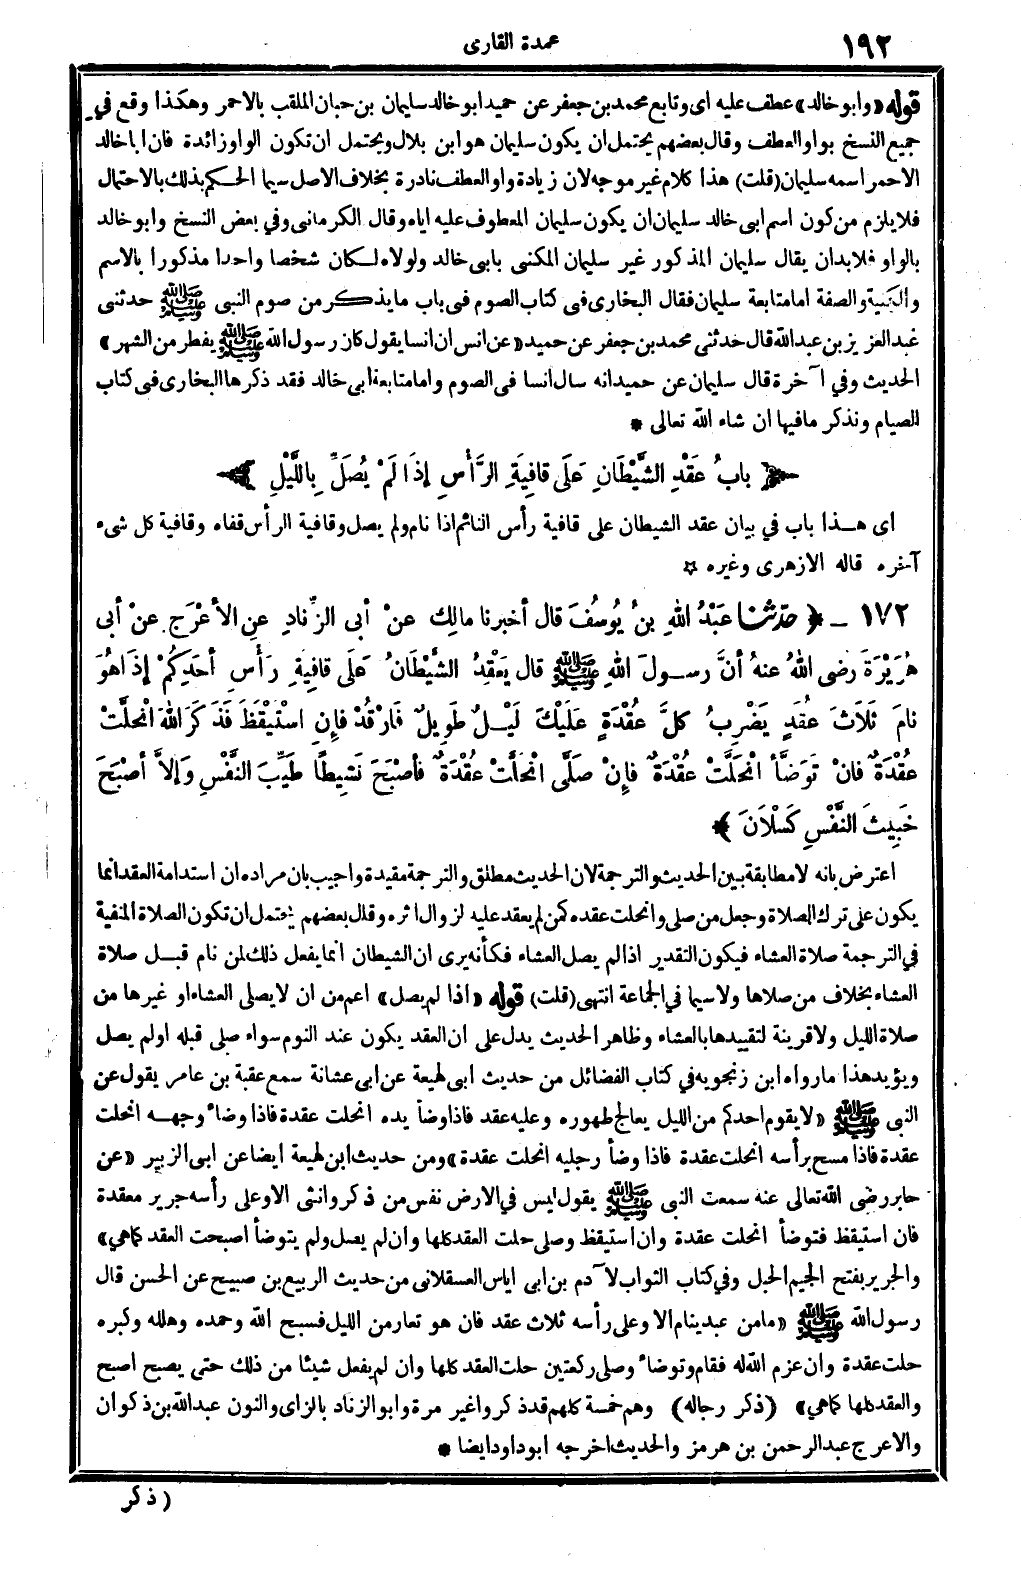 ١٩٢
عمدة القارى
قوله «وابو خالد» عطف عليه اى وتابع محمد بن جعفر عن حميد ابو خالد سليمان بن حبان الملقب بالاحمر وهكذا وقع في
جميع النسخ بواو العطف وقال بعضهم يحتمل ان يكون سليمان هو ابن بلال ويحتمل ان تكون الواو زائدة فان ابا خالد
الاحمر اسمه سليمان (قلت) هذا كلام غير موجه لان زيادة واو العطف نادرة بخلاف الاصل سيما الحكم بذلك بالاحتمال
فلا يلزم من كون اسم ابى خالد سليمان ان يكون سليمان المعطوف عليه اياه وقال الكرمانى وفي بعض النسخ وابو خالد
بالواو فلابدان يقال سليمان المذكور غير سليمان المكنى بابى خالد ولولاه لكان شخصا واحدا مذكورا بالاسم
والكنية والصفة اما متابعة سليمان فقال البخارى فى كتاب الصوم فى باب ما يذكر من صوم النبى ﷺ حدثنى
عبد العزيز بن عبد الله قال حدثنى محمد بن جعفر عن حميد «عن انس ان انسا يقول كان رسول الله ﷺ يفطر من الشهر»
الحديث وفي آخرة قال سليمان عن حميد انه سال انسا فى الصوم واما متابعة ابى خالد فقد ذكرها البخارى فى كتاب
الصيام ونذكر ما فيها ان شاء الله تعالى *
﴿ بابُ عَقْدِ الشَّيْطَانِ عَلَى قافِيَةِ الرَّأْسِ إذَا لَمْ يُصَلِّ بِاللَّيْلِ ﴾
اى هذا باب في بيان عقد الشيطان على قافية رأس النائم اذا نام ولم يصل وقافية الرأس قفاه وقافية كل شىء
آخره قاله الازهرى وغيره *
١٧٢ ـ ﴿ حدّثنا عَبْدُ اللهِ بنُ يُوسُفَ قال أخبرنا مالِك عنْ أبى الزِّنادِ عنِ الأعْرَجِ عنْ أبى
هُرَيْرَةَ رضى اللهُ عنهُ أنَّ رسولَ اللهِ ﷺ قال يَعْقِدُ الشَّيْطَانُ عَلَى قافِيَةِ رَأْسِ أحَدِكُمْ إذَا هُوَ
نامَ ثَلَاثَ عُقَدٍ يَضْرِبُ كلَّ عُقْدَةٍ عَلَيْكَ لَيْلٌ طَوِيلٌ فَارْقُدْ فإنِ اسْتَيْقَظَ فَذَكَرَ اللهَ انْحَلَّتْ
عُقْدَةٌ فانْ تَوَضَّأَ انْحَلَّتْ عُقْدَةٌ فإنْ صَلَّى انْحَلَّتْ عُقْدَةٌ فأصْبَحَ نَشِيطًا طَيِّبَ النَّفْسِ وَإلاَّ أصْبَحَ
خَبِيثَ النَّفْسِ كَسْلَانَ ﴾
اعترض بانه لا مطابقة بين الحديث والترجمة لان الحديث مطلق والترجمة مقيدة واجيب بان مراده ان استدامة العقد انما
يكون على ترك الصلاة وجعل من صلى وانحلت عقده كمن لم يعقد عليه لزوال اثره وقال بعضهم يحتمل ان تكون الصلاة المنفية
في الترجمة صلاة العشاء فيكون التقدير اذا لم يصل العشاء فكأنه يرى ان الشيطان انما يفعل ذلك لمن نام قبل صلاة
العشاء بخلاف من صلاها ولا سيما في الجماعة انتهى (قلت) قوله «اذا لم يصل» اعم من ان لا يصلى العشاء او غيرها من
صلاة الليل ولا قرينة لتقييدها بالعشاء وظاهر الحديث يدل على ان العقد يكون عند النوم سواء صلى قبله اولم يصل
ويؤيد هذا ما رواه ابن زنجويه في كتاب الفضائل من حديث ابى لهيعة عن ابى عشانة سمع عقبة بن عامر يقول عن
النبى ﷺ «لا يقوم احدكم من الليل يعالج طهوره وعليه عقد فاذا وضأ يده انحلت عقدة فاذا وضأ وجهه انحلت
عقدة فاذا مسح برأسه انحلت عقدة فاذا وضأ رجليه انحلت عقدة» ومن حديث ابن لهيعة ايضا عن ابى الزبير «عن
جابر رضى الله تعالى عنه سمعت النبى ﷺ يقول ليس في الارض نفس من ذكر وانثى الا وعلى رأسه جرير معقدة
فان استيقظ فتوضأ انحلت عقدة وان استيقظ وصلى حلت العقد كلها وان لم يصل ولم يتوضأ اصبحت العقد كما هي»
والجرير بفتح الجيم الحبل وفي كتاب الثواب لآدم بن ابى اياس العسقلانى من حديث الربيع بن صبيح عن الحسن قال
رسول الله ﷺ «ما من عبد ينام الا وعلى رأسه ثلاث عقد فان هو تعار من الليل فسبح الله وحمده وهلله وكبره
حلت عقدة وان عزم الله له فقام وتوضأ وصلى ركعتين حلت العقد كلها وان لم يفعل شيئا من ذلك حتى يصبح اصبح
والعقد كلها كما هي» (ذكر رجاله) وهم خمسة كلهم قد ذكروا غير مرة وابو الزناد بالزاى والنون عبد الله بن ذكوان
والاعرج عبد الرحمن بن هرمز والحديث اخرجه ابو داود ايضا *
(ذكر